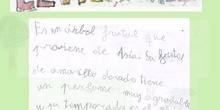 Es un árbol frutal que
proviene de Asia. Su fruto
de amarillo dorado tiene
un perfume muy agradable
y su temporada es el